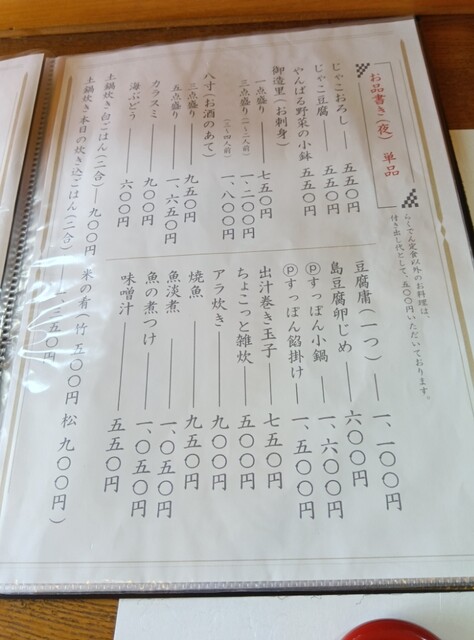 お品書き（夜）　単品
らくてん定食以外のお料理は、
付き出し代として、五〇〇円いただいております。
じゃこおろし ― 五五〇円
じゃこ豆腐 ― 五五〇円
やんばる野菜の小鉢 ― 五五〇円
御造里（お刺身）
一点盛り ― 七五〇円
三点盛り（一～二人前） ― 一、二〇〇円
五点盛り（三～四人前） ― 一、八〇〇円
八寸（お酒のあて）
三点盛り ― 九五〇円
五点盛り ― 一、六五〇円
カラスミ ― 九〇〇円
海ぶどう ― 六〇〇円
土鍋炊き 白ごはん（二合） ― 九〇〇円
土鍋炊き 本日の炊き込ごはん（二合） ― 一、三五〇円
豆腐庸（一つ） ― 一、一〇〇円
島豆腐卵じめ ― 六〇〇円
Ⓟすっぽん小鍋 ― 一、六〇〇円
Ⓟすっぽん餡掛け ― 一、五〇〇円
出汁巻き玉子 ― 七五〇円
ちょこっと雑炊 ― 五〇〇円
アラ炊き ― 九〇〇円
焼魚 ― 九五〇円
魚淡煮 ― 一、〇五〇円
魚の煮つけ ― 一、〇五〇円
味噌汁 ― 五五〇円
米の肴（竹 五〇〇円 松 九〇〇円）